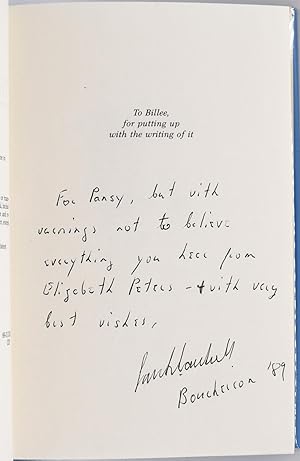 To Billee,
for putting up
with the writing of it
For Pansy, but with
warnings not to believe
everything you hear from
Elizabeth Peters - + with very
best wishes,
Bouchercon '89